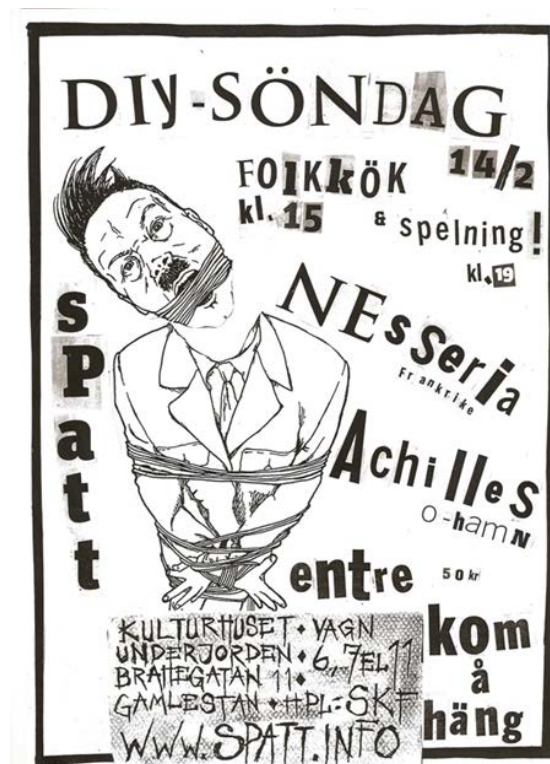 DIy-SÖNDAG
14/2
FOlKkÖK
kl. 15
& spelning!
kl. 19
sPatt
NEsseria
Frankrike
AchilleS
o-hamN
entre 50 kr
KULTURHUSET • VAGN
UNDERJORDEN • 6, 7 EL 11
BRAHEGATAN 11 •
GAMLESTAN • HPL: SKF
WWW.SPATT.INFO
kom
å
häng